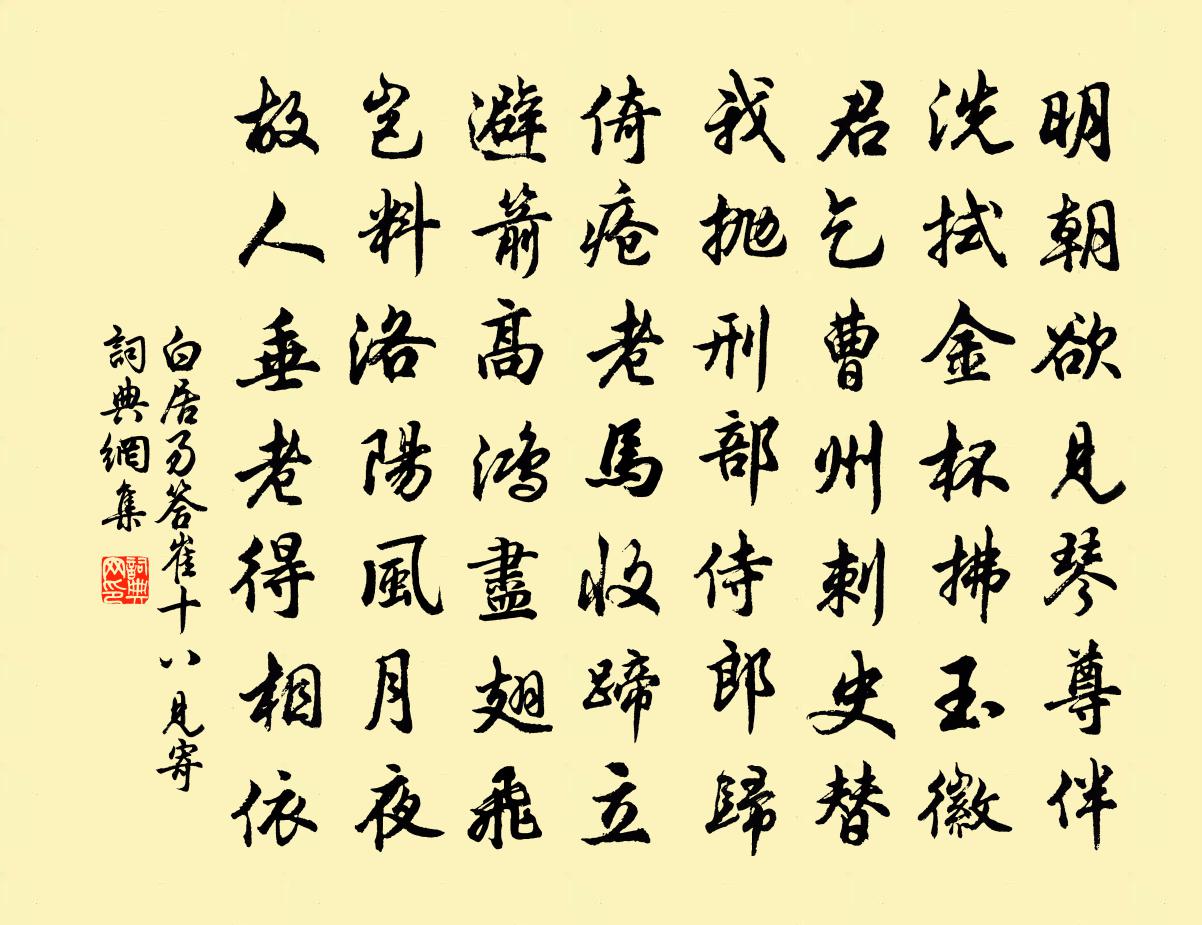 明朝欲見琴尊伴
洗拭金杯拂玉徽
君乞曹州刺史替
我抛刑部侍郎歸
倚瘡老馬收蹄立
避箭高鴻盡翅飛
豈料洛陽風月夜
故人垂老得相依
白居易答崔十八見寄
詞典網集
詞典網印